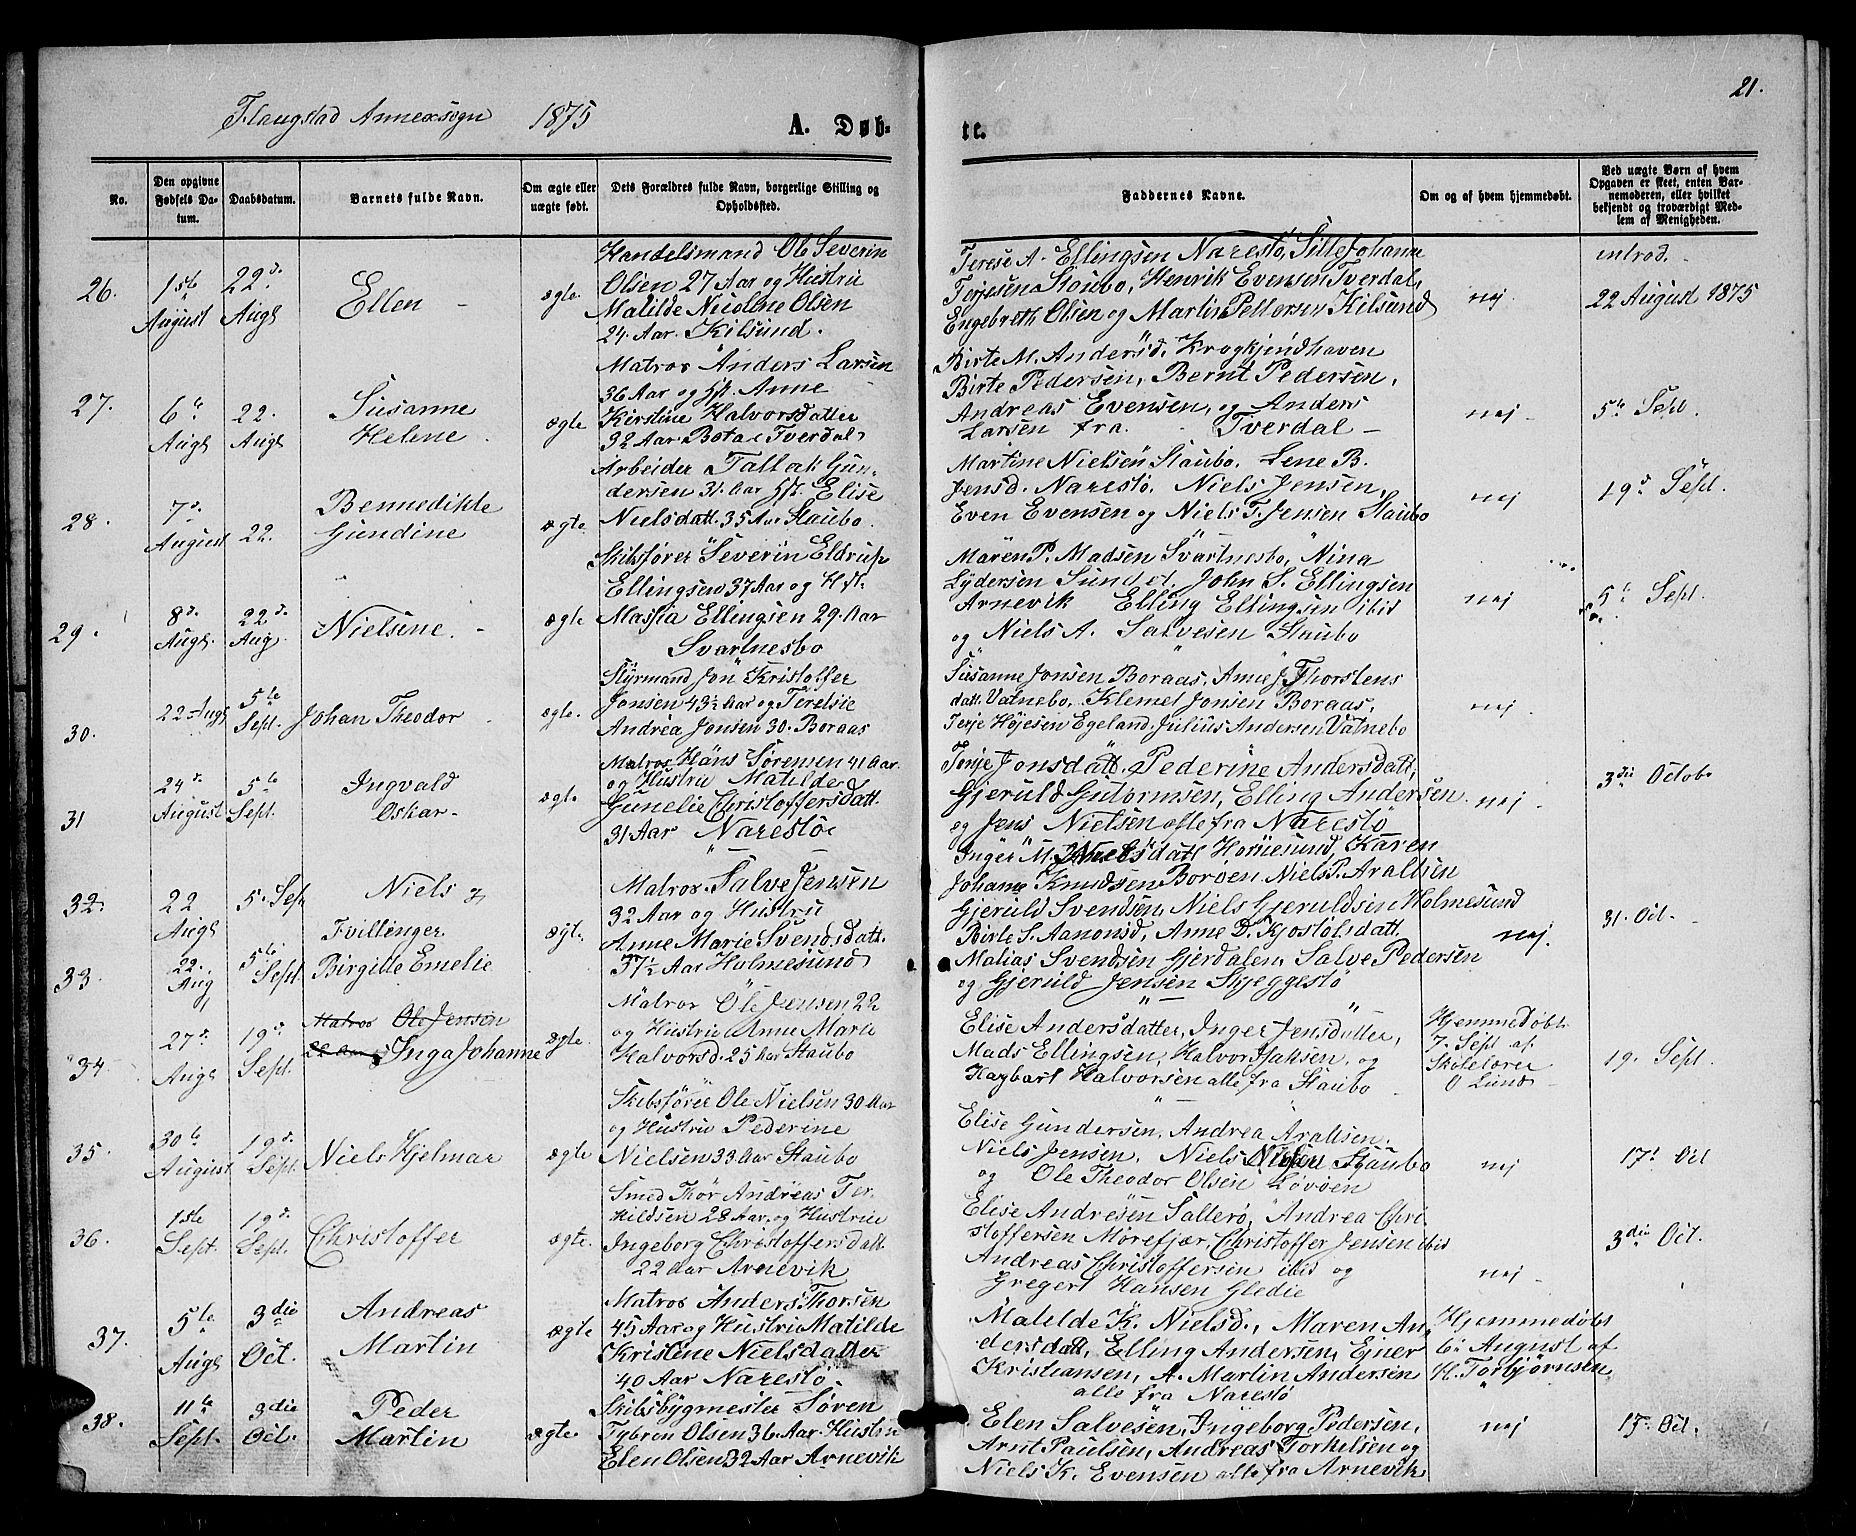 21.
Flaugstad Annexsogn 1875 A. Døb-
te.
No.
Den opgivne
Fødsels Da-
tum.
Daabsdatum.
Barnets fulde Navn.
Om ægte eller
uægte født.
Dets Forældres fulde Navn, borgerlige Stilling og
Opholdssted.
Faddernes Navne.
Om og af hvem hjemmedøbt.
Ved uægte Børn af hvem
Opgaven er skeet, enten Bar-
nemoderen, eller hvilket
bekjendt og troværdigt Med-
lem af Menigheden.
26.
1ste
August
22d.
Augt
Ellen
ægte.
Handelsmand Ole Severin
Olsen 27 Aar og Hustru
Matilde Nicoline Olsen
24. Aar. Kilsund.
Terese A. Ellingsen Narestø, Sille Johanne
Terjesen Staubo, Henrik Evensen Tverdal,
Engebreth Olsen og Martin Pettersen Kilsund
nej.
introd.
22 August 1875
27.
6te
Augt
22.
Augt
Susanne
Helene
ægte
Matros Anders Larsen
36 Aar og Hst. Anne
Kirstine Halvorsdatter
32 Aar Bota Tverdal
Birte M. Andersd. Krogkjendhaven
Birte Pedersen, Bernt Pedersen,
Andreas Evensen, og Anders
Larsen fra Tverdal
nej
5te Sept.
28.
7d.
August
22.
Bennedikte
Gundine
ægte
Arbeider Tallak Gun-
dersen 31. Aar Hst. Elise
Nielsdatt. 35 Aar Staubo.
Martine Nielsen Staubo. Lene B.
Jensd. Narestø. Niels Jensen,
Even Evensen og Niels T. Jensen Staubo
nej
19d Sept.
29.
8d.
Augt.
22d.
Aug.
Nielsine.
ægte
Skibsfører Severin Eldrup
Ellingsen 37 Aar og Hst.
Massia Ellingsen 29. Aar
Svartnesbo
Maren P. Madsen Svartnesbo, Nina
Lydersen Sundet, John S. Ellingsen
Arnevik Elling Ellingsen ibid
og Niels A. Salvesen Staubo
nej
5te Sept.
30.
22 Augt
5te
Sept.
Johan Theodor
ægte.
Styrmand Jon Kristoffer
Jonsen 43½ Aar og Terelsie
Andrea Jonsen 30. Boraas
Susanne Jonsen Boraas, Anne J. Thorstens
datt. Vatnebo, Klemet Jonsen Boraas,
Terje Højesen Egeland. Julius Andersen Vatnebo
nej
31
24d.
August
5te
Sept.
Ingvald
Oskar
ægte
Matros Hans Sørensen 41 Aar.
og Hustru Matilde
Gunelie Christoffersdatt.
31 Aar Narestø
Terje Jonsdatt, Pederine Andersdatt,
Gjeruld Gutormsen, Elling Andersen
og Jens Nielsen alle fra Narestø
nej
3die Octob.
32.
22
Augt
5. Sept
Niels og
Tvillinger.
33.
22.
Aug
5te
Sept.
Birgitte Emelie
ægte.
Matros Salve Jensen
32 Aar og Hustru
Anne Marie Svendsdatt.
37½ Aar Holmesund
Inger M. Nielsdatt Hornesund Karen
Johanne Knudsen Borøen Niels P. Araltsen
Gjeruld Svendsen, Niels Gjeruldsen Holmesund
Birte S. Aanonsd, Anne D. Kjostolsdatt.
Matias Svendsen Gjerdalen, Salve Pedersen
og Gjeruld Jensen Skjeggestø
nej.
31. Oct.
34
27d.
Augt
19d
Sept.
Matros Ole Jensen
22 Aar Inga Johanne
ægte.
Matros Ole Jensen 22
og Hustru Anne Marie
Halvorsd. 25 Aar Staubo
Elise Andersdatter, Inger Jensdatter,
Mads Ellingsen, Halvor Isaksen, og
Hagbart Halvorsen alle fra Staubo
Hjemmedøbt
7. Sept af
Skolelærer
O Lund
19. Sept.
35.
30te
August
19d.
Sept.
Niels Hjelmar
ægte
Skibsfører Ole Nielsen 30 Aar
og Hustru Pederine
Nielsen 33 Aar Staubo
Elise Gundersen, Andrea Araltsen.
Niels Jensen, Niels Olsen Staubo
og Ole Theodor Olsen Løvøen
nej
17d Oct
36.
1ste
Sept.
19d.
Sept.
Christoffer
ægte.
Smed Thor Andreas Ter-
kildsen 28 Aar og Hustrue
Ingeborg Christoffersdatt.
22 Aar Arnevik
Elise Andresen Salterø, Andrea Chri-
stoffersen Mørefjær, Christoffer Jensen ibid
Andreas Christoffersen ibid og
Gregert Hansen Gledie
nej
3die Oct.
37.
5te
Augt
3die
Oct.
Andreas
Martin
ægte
Matros Anders Thorsen
45 Aar og Hustru Matilde
Kristine Nielsdatter
40 Aar Narestø
Matelde K. Nielsd., Maren An-
dersdatt, Elling Andersen, Ejner
Kristiansen, A. Martin Andersen
alle fra Narestø
Hjemmedøbt
6te August af
H. Torbjørnsen
38.
11te
Sept.
3die
Oct.
Peder
Martin
ægte.
Skibsbygmester Søren
Tybren Olsen 36 Aar. Hustru
Elen Olsen 32 Aar Arnevik
Elen Salvesen, Ingeborg Pedersen,
Arnt Paulsen, Andreas Torkelsen og
Niels K. Evensen alle fra Arnevik
nej
17. Oct.